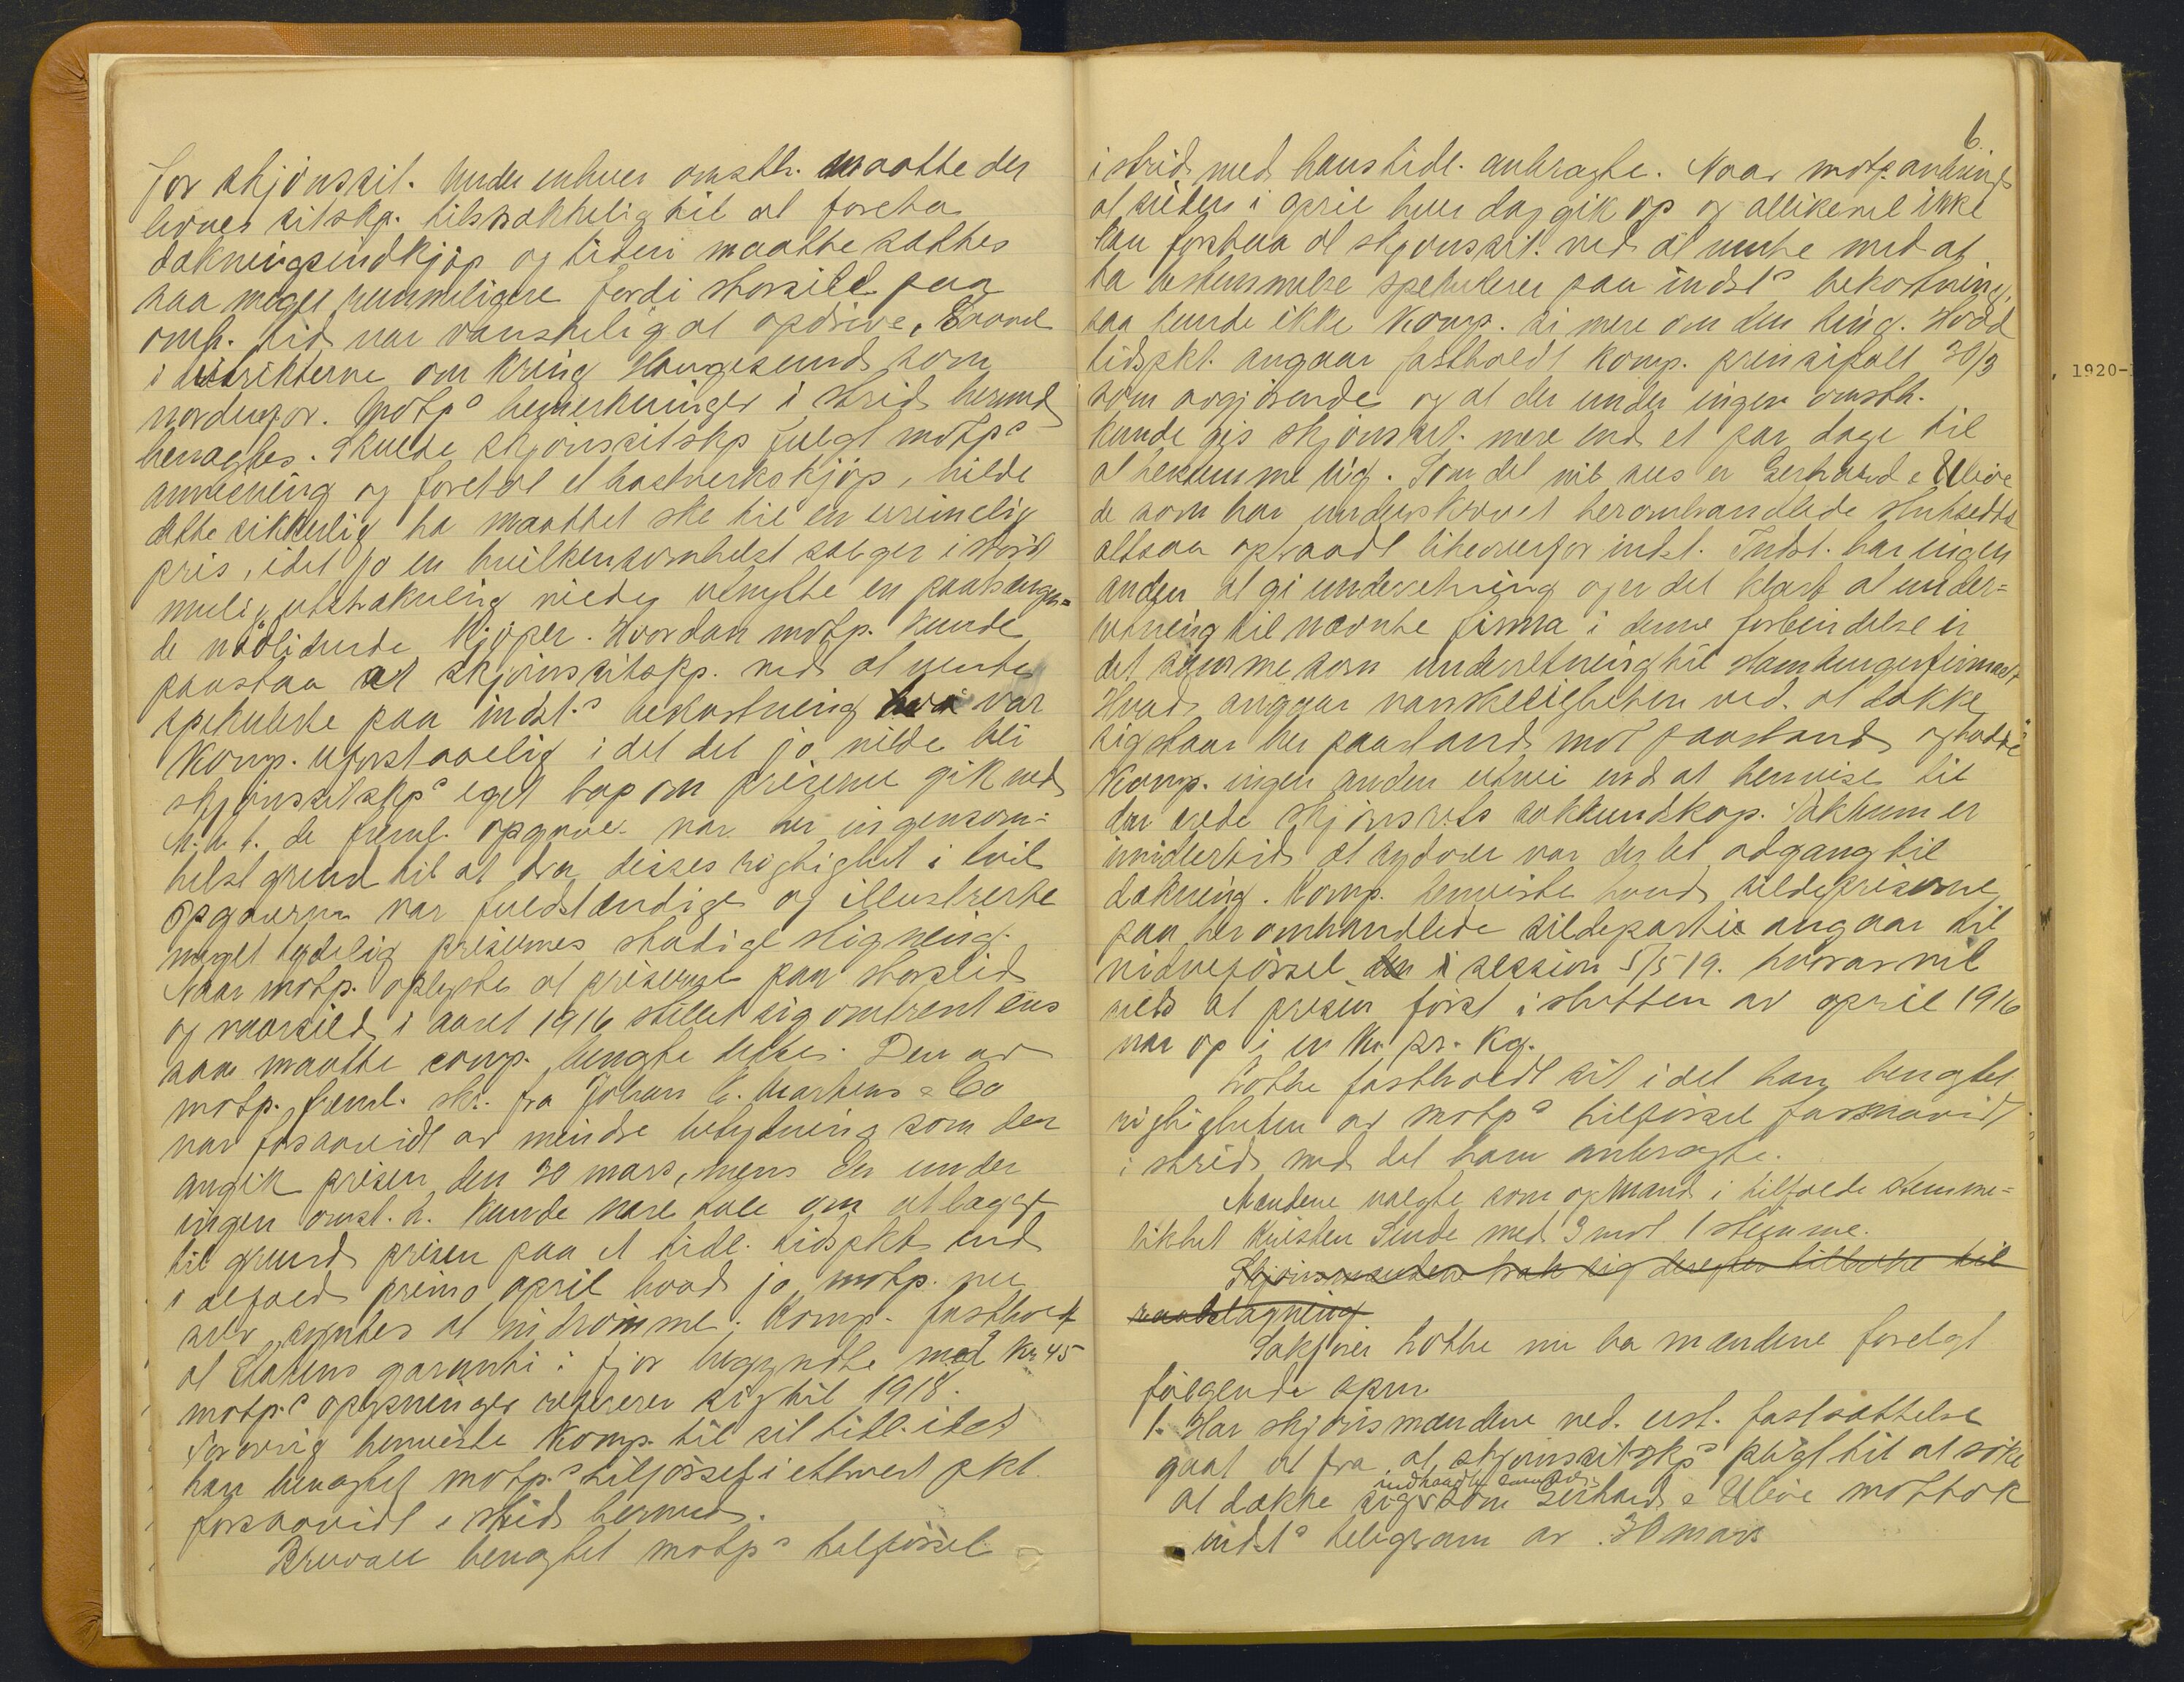 for skjønscit. Under enhver omsth. maatte der
levnes citskp. tilstrækkelig tid at foreta
dækningsindkjøp og tiden maatte sættes
saa meget rummeligere fordi storsild paa
omh. tid var vanskelig at opdrive, saavel
i distrikterne om kring Haugesund som
nordenfor. Motp.s bemerkninger i strid hermed
benægtes. Skulde skjønscitskp fulgt motp.s
anvisning og foretat et hastverkskjøp, vilde
dette sikkerlig ha maattet ske til en urimelig
pris, idet jo en hvilkensomhelst sælger i størst
mulig utstrækning vilde utnytte en paatrængen=
de nødlidende kjøper. Hvordan motp. kunde
paastaa at skjønscitskp. ved at vente
spekulerte paa indst.s bekostning var
Komp. uforstaaelig idet det jo vilde bli
skjønscitskp.s eget tap om priserne gik ned
M. h. t. de freml. opgaver var der ingensom=
helst grund til at dra disses rigtighet i tvil
Opgaverne var fuldstændige og illustrerte
meget tydelig prisernes stadige stigning.
Naar motp. oplyste at priserne paa storsild
og vaarsild i aaret 1916 stillet sig omtrent ens
saa maatte comp. benegte dette. Den av
motp. freml. skr. fra Johan C. Martens & Co
var forsaavidt av mindre betydning som den
angik prisen den 30 mars, mens der under
ingen omst.h. kunde være tale om at lægge
til grund prisen paa et tidl. tidspkt end
i alfald primo april hvad jo motp. nu
selv syntes at indrømme. Komp. fastholdt
at Statens garanti i fjor begyndte med kr 45
motp.s oplysninger refererer sig til 1918.
Forøvrig henviste Komp. til sit tidl. idet
han benægtet motp.s tilførsel i ethvert pkt.
forsaavidt i strid hermed.
Bruvall benægtet motp.s tilførsel
6.
i strid med hans tidl. anbragte. Naar motp. anbringer
at silden i april hver dag gik op og allikevel ikke
kan forstaa at skjønscit. ved at vente med at
ta bestemmelse spekulerer paa indst.s bekostning,
saa kunde ikke Komp. si mere om den ting. Hvad
tidspkt. angaar fastholdt Komp. prinsipalt 30/3
som avgjørende og at der under ingen omsth.
kunde gis skjønscit. mere end et par dage til
at bestemme sig. Som det vil sees er Gerhard & Ulive
de som har underskrevet heromhandlede slutseddel
altsaa optraadt likeoverfor indst. Indst. har ingen
anden at gi underretning og er det klart at under=
retning til nævnte firma i denne forbindelse er
det samme som underretning til Hamburgerfirmaet.
Hvad angaar vanskeligheten ved. at dække
sig staar her paastand mot paastand og hadde
Komp. ingen anden utvei end at henvise til
den ærede skjønsrets sakkundskap. Faktum er
imidlertid at sydover var der let adgang til
dækning. Komp. henviste hvad sildepriserne
paa her omhandlede sildepartie angaar til
vidneførsel i session 5/5 19. hvorav vil
sees at prisen først i slutten av april 1916
var op i en kr. pr. kg.
Lothe fastholdt sit idet han benegtet
rigtigheten av motp.s tilførsel forsaavidt
i strid med det ham anbragte.
Mændene valgte som opmand i tilfælde stemme=
likhet Kristen Sunde med 3 mot 1 stemme.
Skjønsmændene trak sig derefter tilbake til
raadslagning
Sakfører Lothe nu ba mændene forelagt
følgende spm.
1. Har skjønsmændene ved. erst. fastsættelse
gaat ut fra at skjønscitskp.s pligt til at søke
at dække sig som Gerhard & Ulive mottok
indst.s telegram av 30 mars